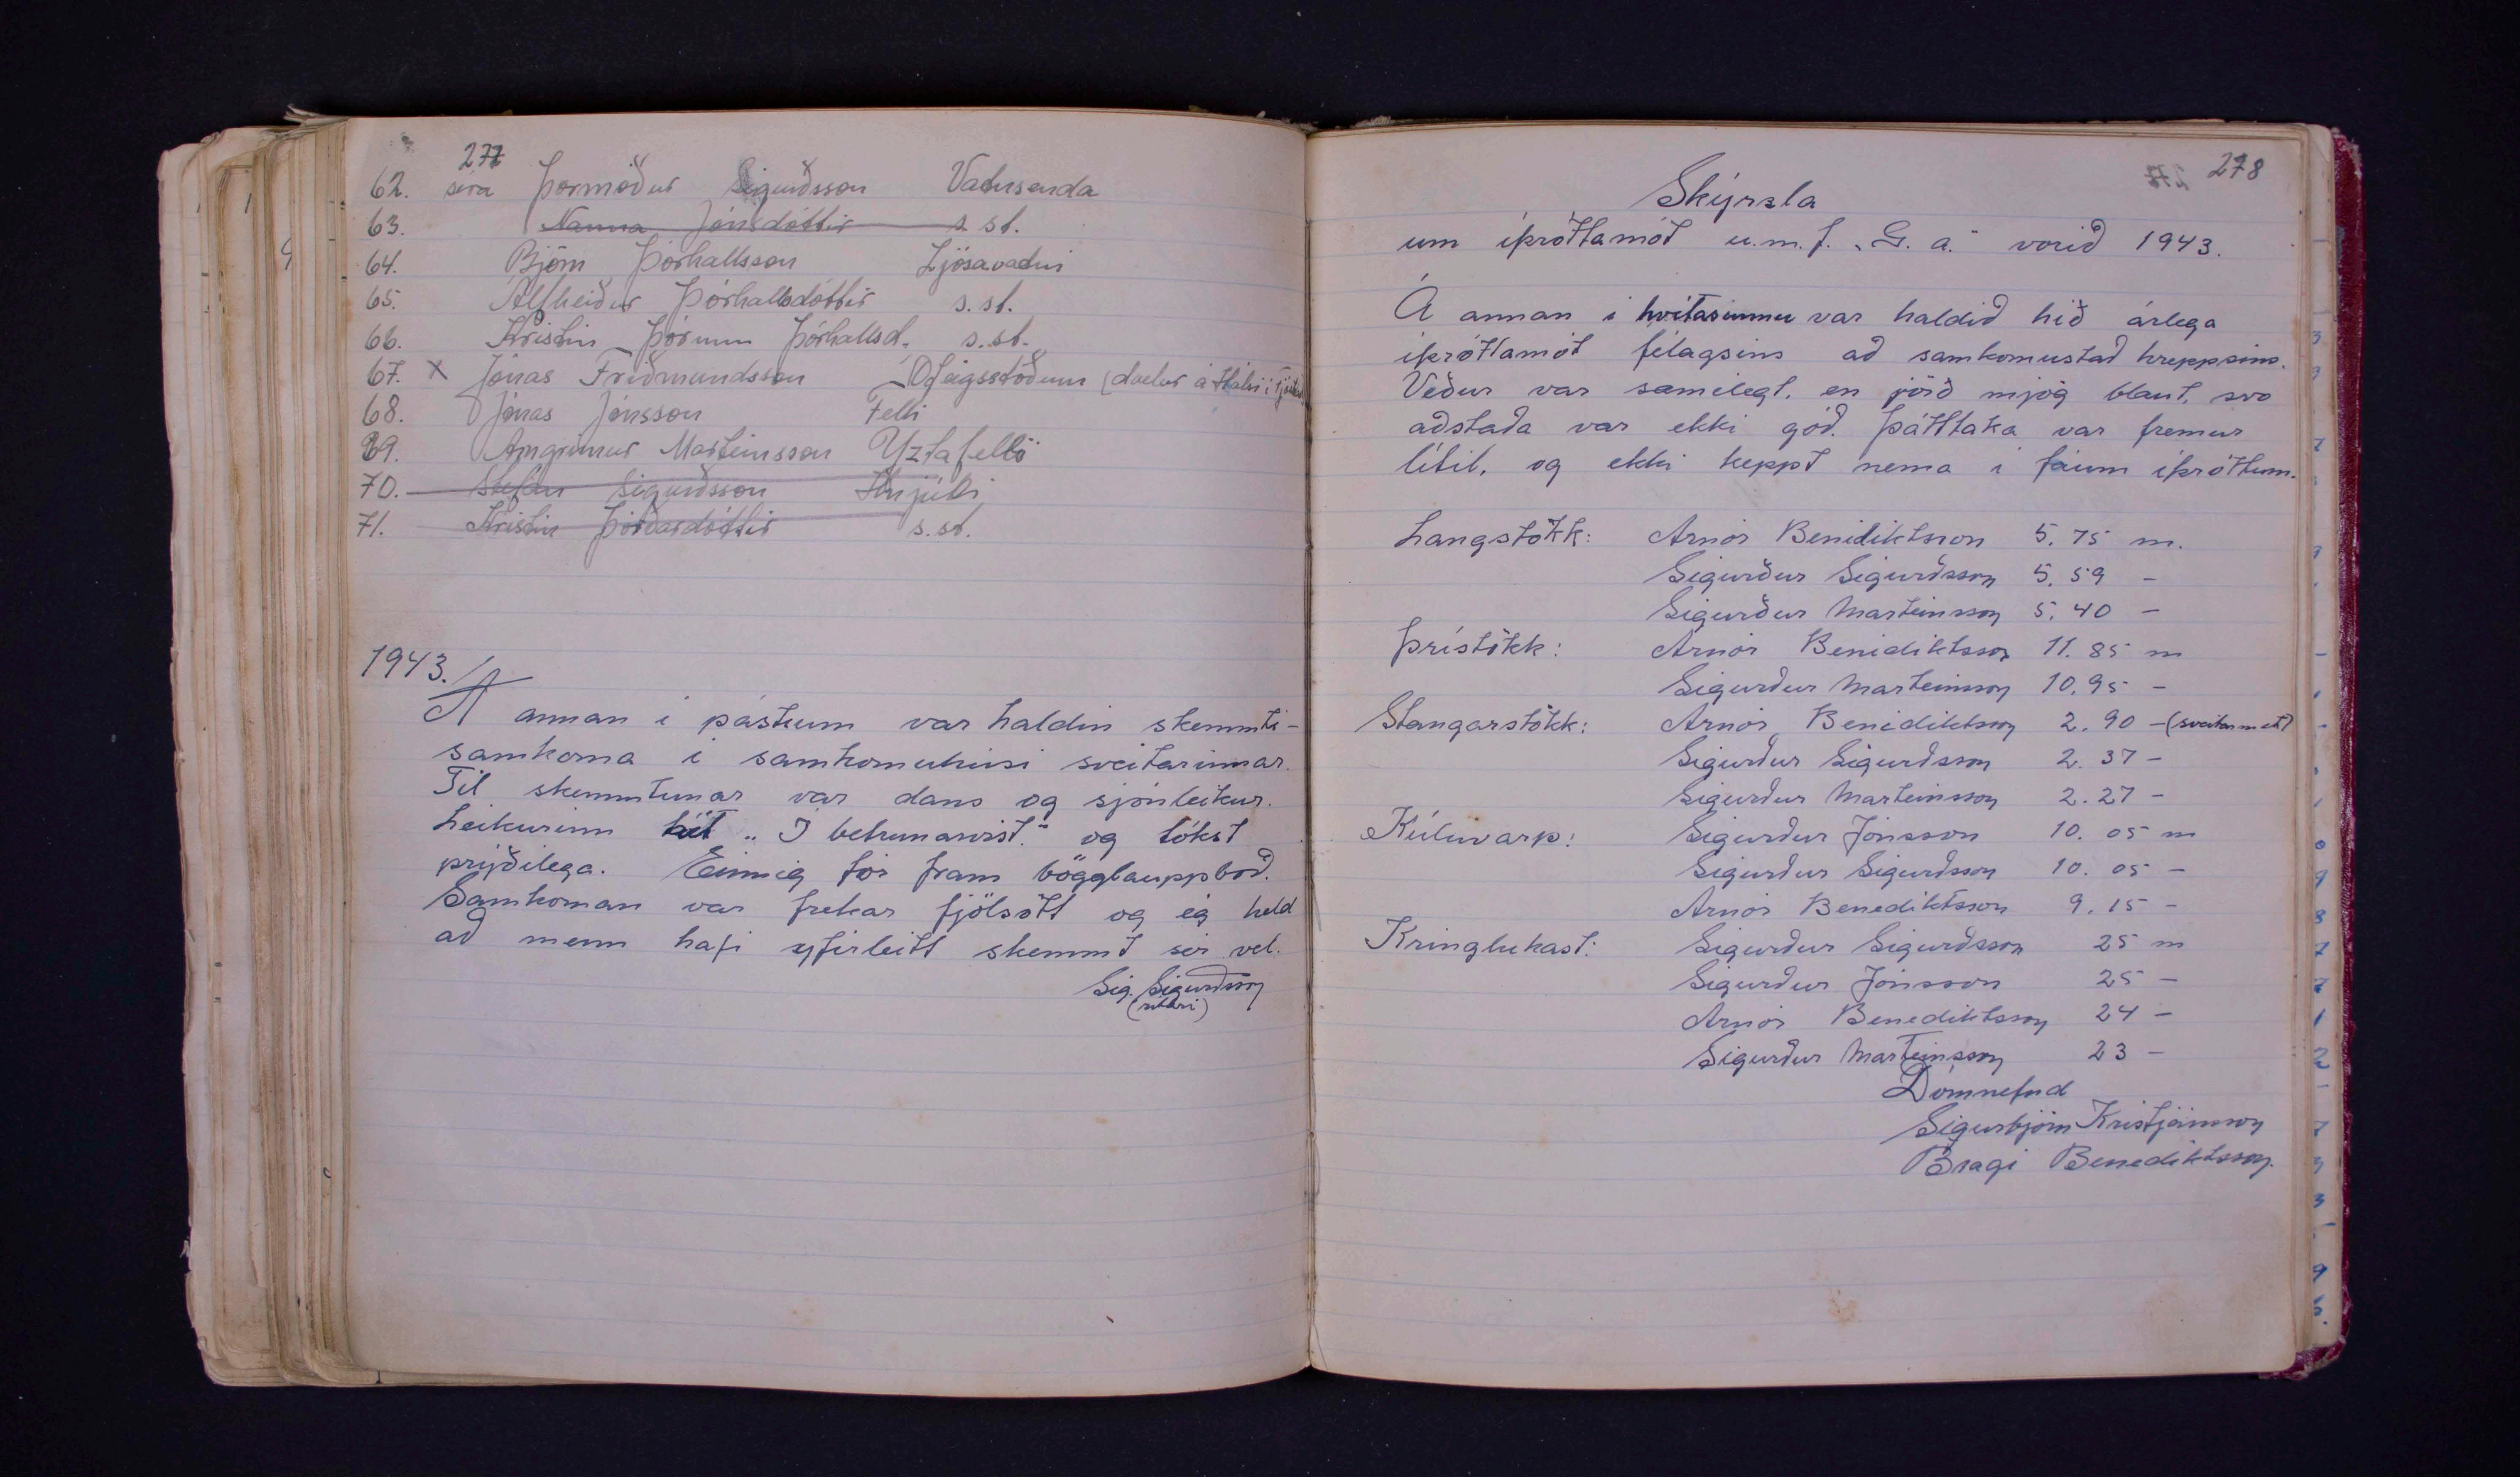 277
62. séra Þormóður Sigurðsson Vatnsenda
63. Nanna Jónsdóttir s. st.
64. Björn Þórhallsson Ljósavatni
65. Álfheiður Þórhallsdóttir s. st.
66. Kristín Þórunn Þórhallsd. s. st.
67. X Jónas Friðmundsson Ófeigsstöðum (dvelur á
68. Jónas Jónsson Felli
69. Arngrímur Marteinsson Yztafelli
70. Stefán Sigurðsson Hnjúki
71. Kristín Þórðardóttir s. st.
1943.
Á annan í páskum var haldin skemmti-
samkoma í samkomuhúsi sveitarinnar.
Til skemmtunar var dans og sjónleikur.
Leikurinn hét „Í betrunarvist." og tókst
prýðilega. Einnig fór fram bögglauppboð.
Samkoman var frekar fjölsótt og ég held
að menn hafi yfirleitt skemmt sér vel.
Sig. Sigurðsson
(ritari)
278
Skýrsla
um íþróttamót u.m.f. „G. a." vorið 1943.
Á annan í hvítasunnu var haldið hið árlega
íþróttamót félagsins að samkomustað hreppsins.
Veður var sæmilegt, en jörð mjög blaut, svo
aðstaða var ekki góð. Þátttaka var fremur
lítil, og ekki keppt nema í fáum íþróttum.
Langstökk: Arnór Benidiktsson 5.75 m.
Sigurður Sigurðsson 5.59 -
Sigurður Marteinsson 5.40 -
Þrístökk: Arnór Benidiktsson 11.85 m
Sigurður Marteinsson 10.95 -
Stangarstökk: Arnór Benidiktsson 2.90 - (sveitarmet)
Sigurður Sigurðsson 2.37 -
Sigurður Marteinsson 2.27 -
Kúluvarp: Sigurður Jónsson 10.05 m
Sigurður Sigurðsson 10.05 -
Arnór Benediktsson 9.15 -
Kringlukast: Sigurður Sigurðsson 25 m
Sigurður Jónsson 25 -
Arnór Benediktsson 24 -
Sigurður Marteinsson 23 -
Dómnefnd
Sigurbjörn Kristjánsson
Bragi Benediktsson.